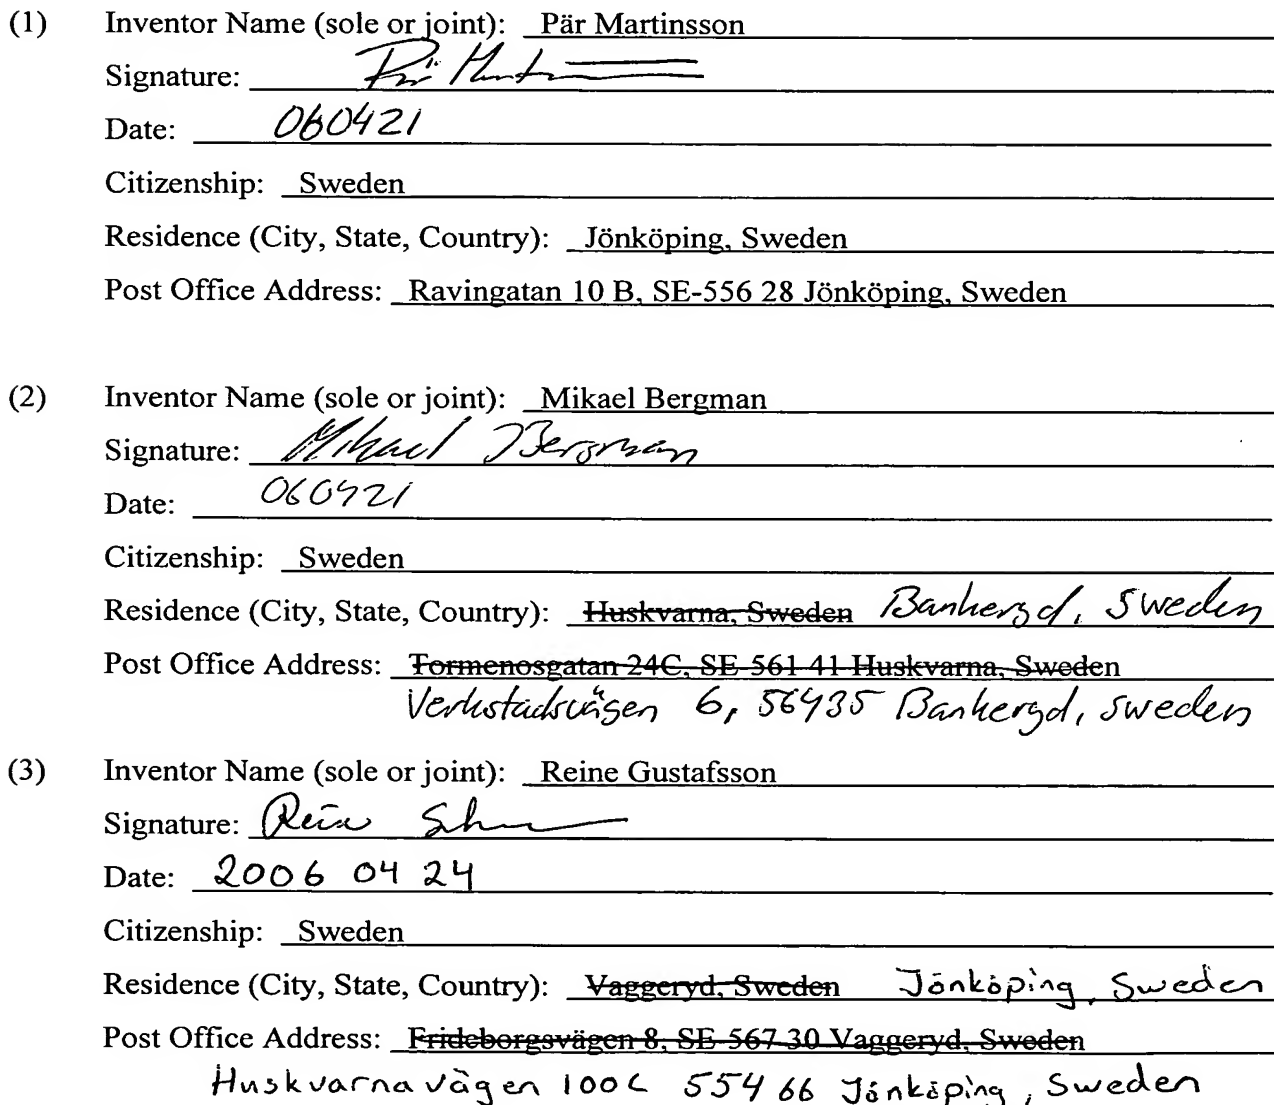 (1) Inventor Name (sole or joint): Pär Martinsson
Signature:
Date: 060421
Citizenship: Sweden
Residence (City, State, Country): Jönköping, Sweden
Post Office Address: Ravingatan 10 B, SE-556 28 Jönköping, Sweden
(2) Inventor Name (sole or joint): Mikael Bergman
Signature: Mikael Bergman
Date: 060421
Citizenship: Sweden
Residence (City, State, Country): Huskvarna, Sweden Bankeryd, Sweden
Post Office Address: Tormenosgatan 24C, SE-561 41 Huskvarna, Sweden
Verkstadsvägen 6, 56435 Bankeryd, Sweden
(3) Inventor Name (sole or joint): Reine Gustafsson
Signature:
Date: 2006 04 24
Citizenship: Sweden
Residence (City, State, Country): Vaggeryd, Sweden Jönköping, Sweden
Post Office Address: Frideborgsvägen 8, SE-567 30 Vaggeryd, Sweden
Huskvarnavägen 100C 554 66 Jönköping, Sweden